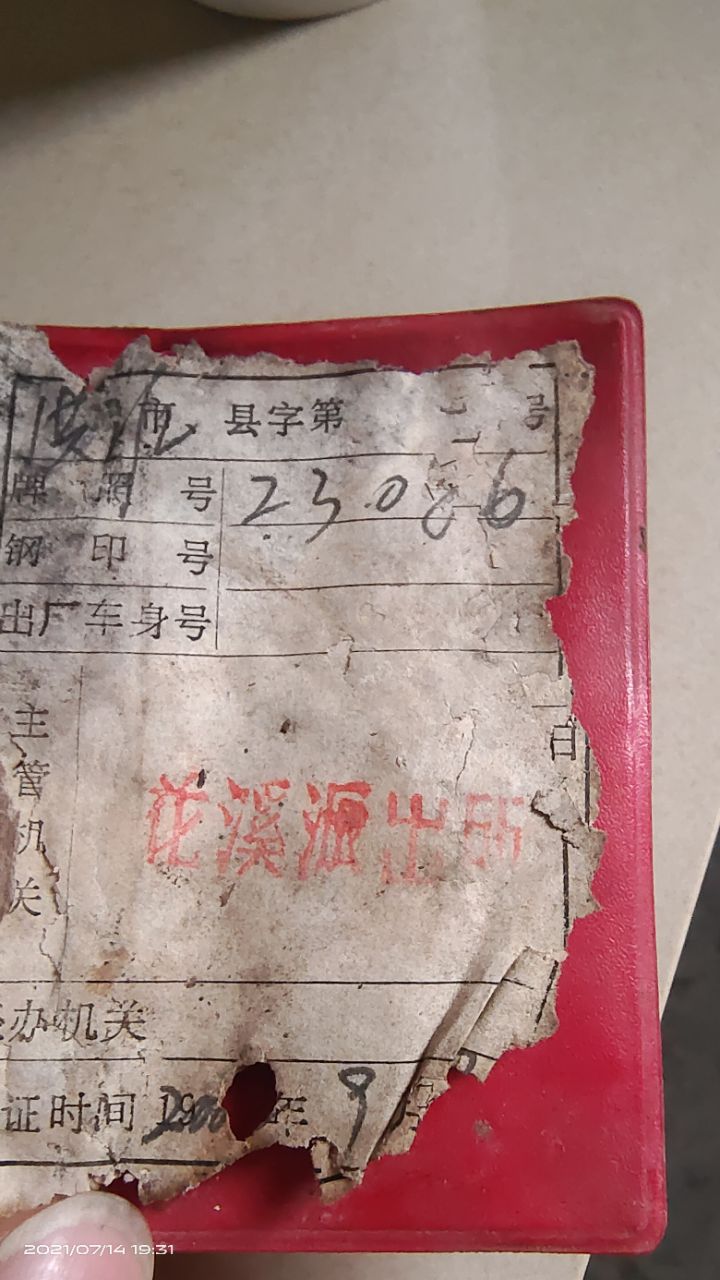 市 县字第 号
牌照号 23086
钢印号
出厂车身号
主管机关
花溪派出所
办机关
证时间 19 年 9 月
2021/07/14 19:31